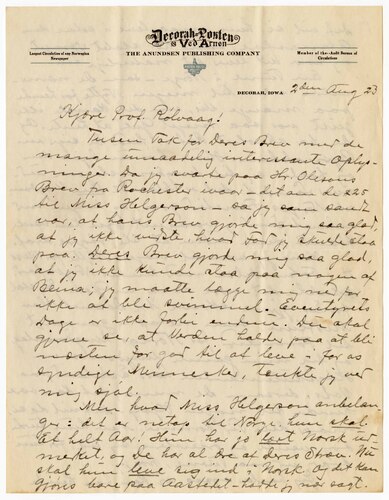 Decorah-Posten
& Ved Arnen
Largest Circulation of any Norwegian
Newspaper
THE ANUNDSEN PUBLISHING COMPANY
Member of the Audit Bureau of
Circulations
DECORAH, IOWA 2den Aug 23
Kjære Prof. Rølvaag!
Tusen Tak for Deres Brev med de
mange umaadelig interessante Oplys-
ninger. Da jeg svarte paa Hr. Olesons
Brev fra Rochester ivaar – det om de $25
til Miss Helgerson – sa jeg som sandt
var, at hans Brev gjorde mig saa glad,
at jeg ikke vidste, hvad Fod jeg skulde staa
paa. Deres Brev gjorde mig saa glad,
at jeg ikke kunde staa paa nogen af
Beina; jeg maatte lægge mig ned for
ikke at bli svimmel. Eventyrets
Dage er ikke forbi endnu. Du skal
gjerne se, at Verden holder paa at bli
næsten for god til at leve – for os
syndige Mennesker, tænkte jeg ved
mig sjøl.
Men hvad Miss Helgerson anbelan-
ger: det er netop til Norge, hun skal
et helt Aar. Hun har jo lært Norsk ud-
merket, og De har al Ære af Deres Elev. Nu
skal hun leve sig ind i Norsk. Og det kan
gjøres bare paa Aastedet – hadde jeg nær sagt.